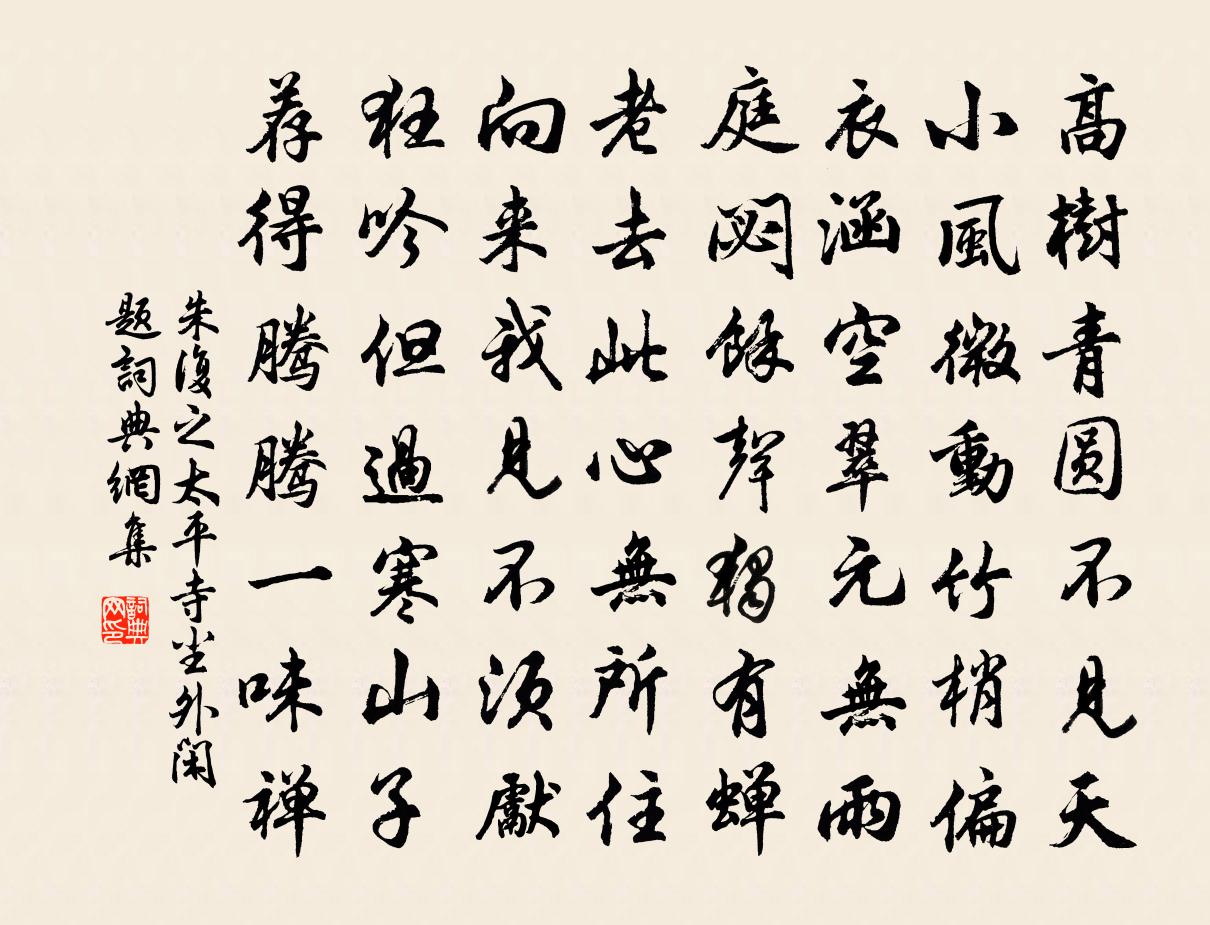 高樹青圆不見天
小風微動竹梢偏
衣涵空翠元無雨
庭閟餘聲独有蝉
老去此心無所住
向来我見不須獻
狂吟但過寒山子
荐得騰騰一味禅
朱復之太平寺坐外閑
題詞典網集
詞典网印